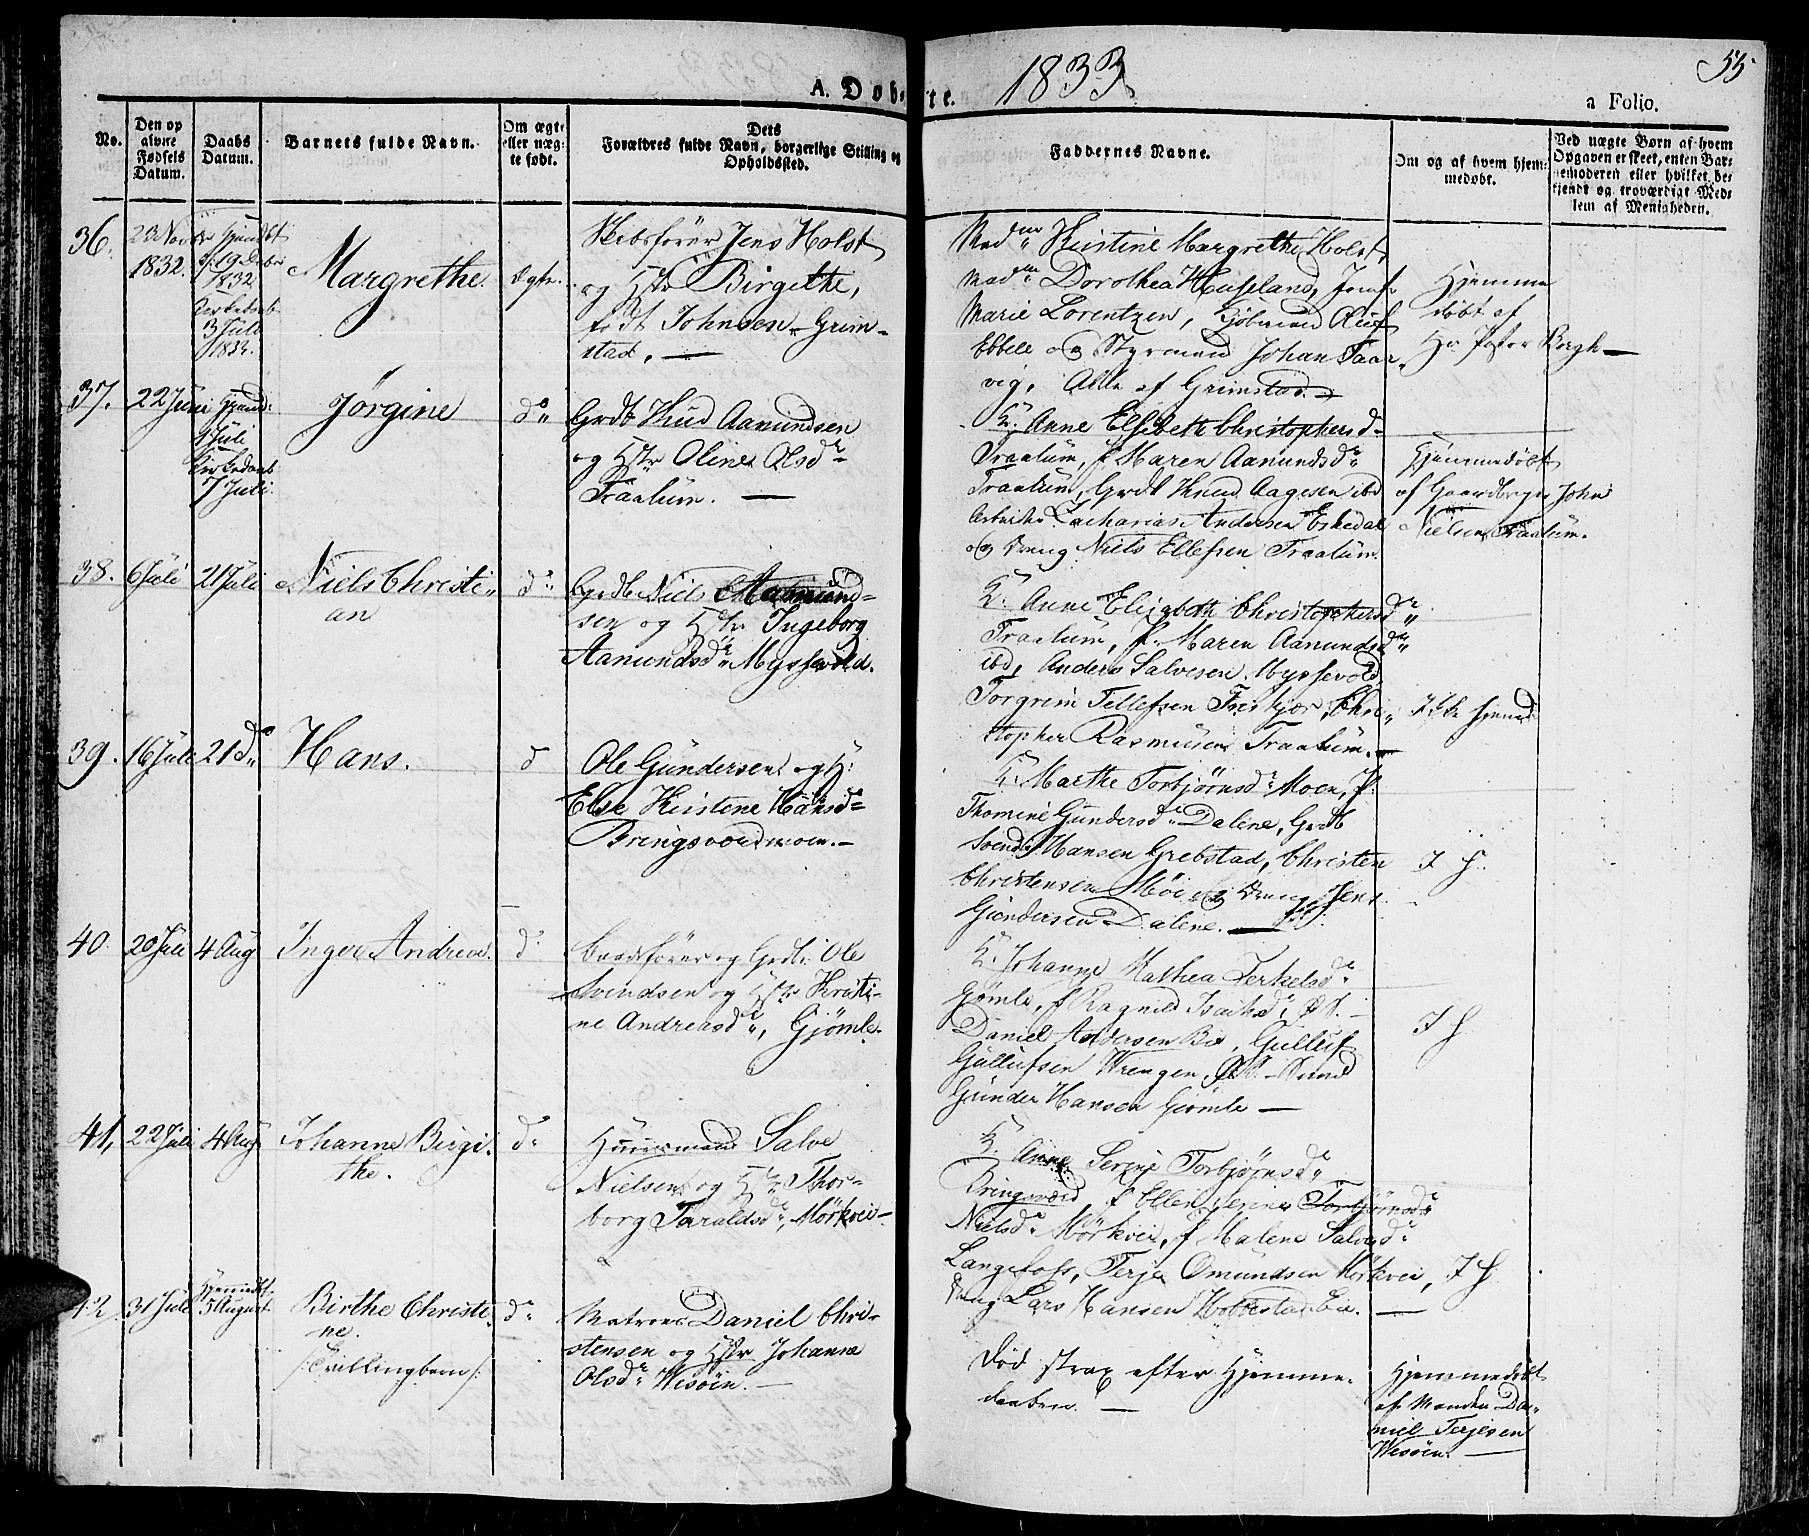 1833
55
A. Døbte.
a Folio.
No.
Den op
givne
Fødsels
Datum.
Daabs
Datum.
Barnets fulde Navn.
Om ægte
eller uæg-
te født.
Dets
Forældres fulde Navn, borgerlige Stilling og
Opholdssted.
Faddernes Navne.
Om og af hvem hjem-
medøbt.
Ved uægte Børn af hvem
Opgaven er skeet, enten Bar-
nemoderen eller hvilket be-
kjendt og troværdigt Med-
lem af Menigheden.
36.
1832.
1832
3 Juli
Margrethe.
Ægte.
Skibsfører Jens Holst
og Hstr Birgithe,
født Johnsen Grim-
stad.
Madm Kistine Margrethe Holst,
Madm Dorothea Huseland, Jomf.
Marie Lorentzen, Kjøbmand Oluf
Ebbell og Styrmand Johan Taar
vig, Alle af Grimstad.
Hjemme
døbt af
Hr Pastor Bergh
37.
22 Juni
Juli
Kirkedaab
7 Juli.
Jørgine
do
Grdb Knud Aamundsen
og Hstr Oline Olsdr
Traalum.
K. Anne Elsebeth Christophersd
Traalum, P. Maren Aamundsdr
Traalum, Grdb Knud Aagesen ibd
Arbeider Zacharias Andersen Eskedal
og Dreng Niels Ellefsen Traalum.
Hjemmedøbt
af Gaardbruger John
Nielsen Traalum.
38.
6 Juli
21 Juli
Niels Christi-
an
do
Grdb Niels Aamund-
sen og Hstr Ingeborg
Aamundsdr Myssevold.
K. Anne Elisabeth Christophersdr
Traalum, P. Maren Aamundsdr
ibd, Anders Salvesen Myssevold,
Torgrim Tellefsen Freskjær, Chri-
stopher Rasmusen Traalum.
39.
16 Juli
21 do
Hans.
d
Ole Gundersen og H.
Else Kirstene Hansd
Bringsværdmoen.
K. Marthe Torbjørnsdr Moen, P.
Thomine Gundersdr Dalene, Grdb
Svend Hansen Grebstad, Christen
Christensen Møe og Dreng Jens
Gundersen Dalene.
I H.
40.
20 Juli
4 Aug
Inger Andrea.
d.
og Grdb. Ole
Svendsen og Hstr Kristi-
ne Andreasdr, Gjømle.
K. Johanne Mathea Terkelsdr
Gjømle, P Ragnild Isachsdr
Daniel Andersen Bie, Gulluf
Gullufsen Wrengen,
Gunder Hansen Gjømle
I H
41,
22 Juli
4 Aug
Johanne Birgi-
the.
do
Huusmand Salve
Nielsen og Hstr Thor-
borg Taraldsdr, Mörkvei
K. Anne Serine Torbjørnsdr
Bringsværd, P Ellen Serine Torbjørnsdr
Nielsdr Mörkvei, P Malene Salvesdr
Langefoss, Terje Omundsen Mörkvei,
Dreng Lars Hansen
I H.
42,
31 Juli
Hjemmedt
5 August
Birthe Christi-
ne.
/: Tvillingbarn :/
do
Matros Daniel Chri-
stensen og Hstr Johanne
Olsdr Wesöen.
Död strax efter Hjemme-
daaben.
Hjemmedøbt
af Manden Da-
niel Terjesen
Wesöen.